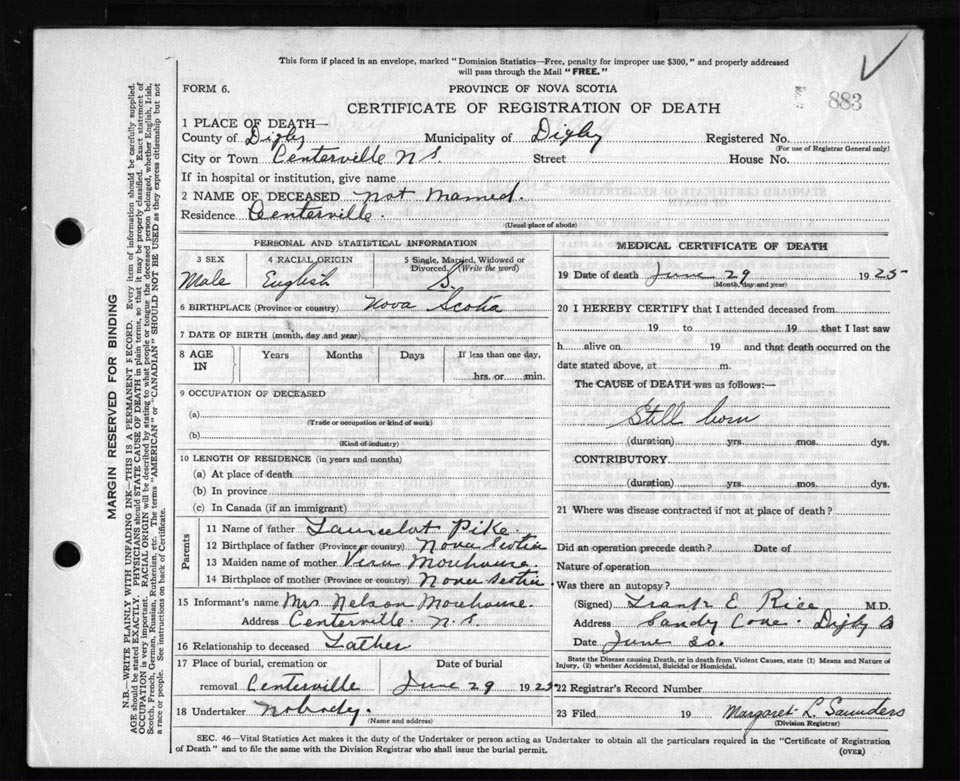 This form if placed in an envelope, marked "Dominion Statistics—Free, penalty for improper use $300," and properly addressed
will pass through the Mail "FREE."
FORM 6.
PROVINCE OF NOVA SCOTIA
883
CERTIFICATE OF REGISTRATION OF DEATH
1 PLACE OF DEATH—
County of Digby Municipality of Digby Registered No.
(For use of Registrar General only)
City or Town Centerville N S. Street House No.
If in hospital or institution, give name
2 NAME OF DECEASED Not Named.
Residence Centerville.
(Usual place of abode)
PERSONAL AND STATISTICAL INFORMATION
3 SEX 4 RACIAL ORIGIN 5 Single, Married, Widowed or
Divorced. (Write the word)
Male English S.
6 BIRTHPLACE (Province or country) Nova Scotia
7 DATE OF BIRTH (month, day and year)
8 AGE Years Months Days If less than one day,
IN hrs. or min.
9 OCCUPATION OF DECEASED
(a)
(Trade or occupation or kind of work)
(b)
(Kind of industry)
10 LENGTH OF RESIDENCE (in years and months)
(a) At place of death
(b) In province
(c) In Canada (if an immigrant)
Parents
11 Name of father Launcelot Pike.
12 Birthplace of father (Province or country) Nova Scotia
13 Maiden name of mother Vera Morehouse.
14 Birthplace of mother (Province or country) Nova Scotia.
15 Informant's name Mrs Nelson Morehouse.
Address Centerville. N.S.
16 Relationship to deceased Father
17 Place of burial, cremation or Date of burial
removal Centerville June 29 1925
18 Undertaker Nobody.
(Name and address)
MEDICAL CERTIFICATE OF DEATH
19 Date of death June 29 1925
(Month, day and year)
20 I HEREBY CERTIFY that I attended deceased from
19 to 19 that I last saw
h alive on 19 and that death occurred on the
date stated above, at m.
The CAUSE of DEATH was as follows:—
Still born
(duration) yrs. mos. dys.
CONTRIBUTORY
(duration) yrs. mos. dys.
21 Where was disease contracted if not at place of death?
Did an operation precede death? Date of
Nature of operation
Was there an autopsy?
(Signed) Frank E Rice M.D.
Address Sandy Cove. Digby
Date June 30.
State the Disease causing Death, or in death from Violent Causes, state (1) Means and Nature of
Injury, (2) whether Accidental, Suicidal or Homicidal.
22 Registrar's Record Number
23 Filed 19 Margaret L. Saunders
(Division Registrar)
SEC. 46—Vital Statistics Act makes it the duty of the Undertaker or person acting as Undertaker to obtain all the particulars required in the "Certificate of Registration
of Death" and to file the same with the Division Registrar who shall issue the burial permit.
(OVER)
MARGIN RESERVED FOR BINDING
N.B.—WRITE PLAINLY WITH UNFADING INK—THIS IS A PERMANENT RECORD. Every item of information should be carefully supplied.
AGE should be stated EXACTLY. PHYSICIANS should STATE CAUSE OF DEATH in plain terms, so that it may be properly classified. Exact statement of
OCCUPATION is very important. RACIAL ORIGIN will be described by stating to what people or tongue the deceased person belonged, whether English, Irish,
Scotch, French, German, Russian, Ruthenian, etc. The terms "AMERICAN" or "CANADIAN" SHOULD NOT BE USED as they express citizenship but not
a race or people. See instructions on back of Certificate.